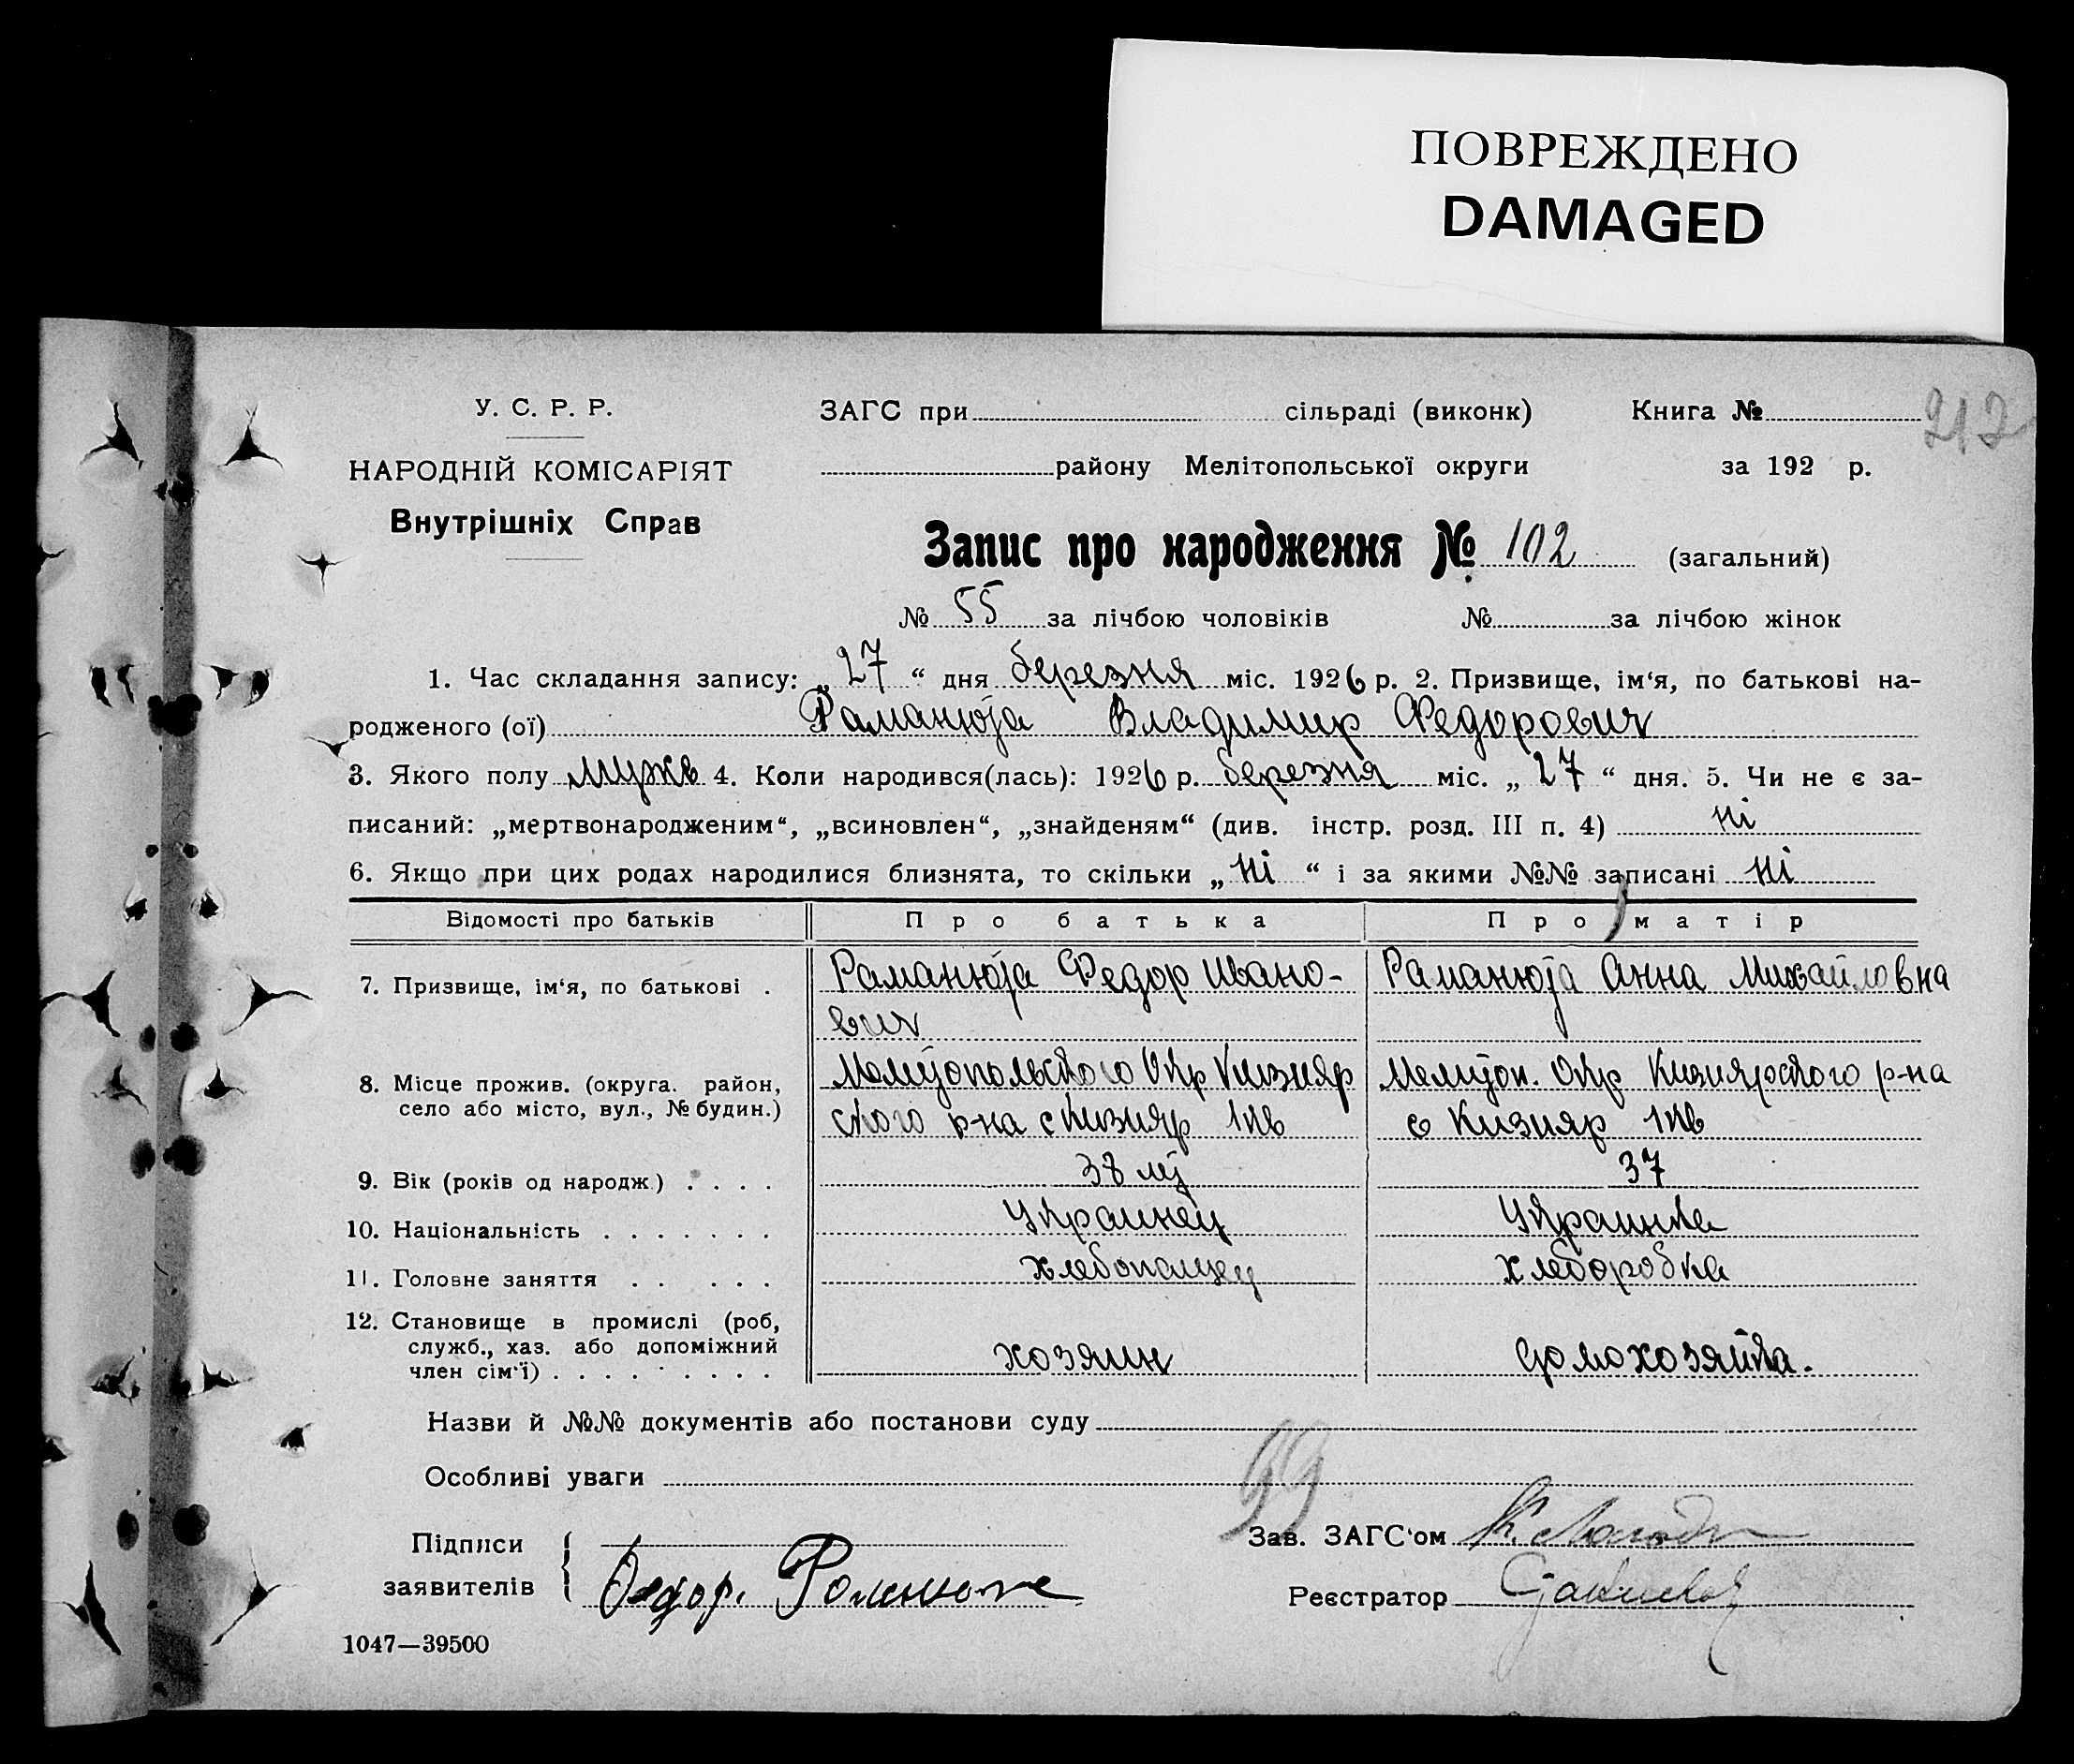 ПОВРЕЖДЕНО
DAMAGED
212
У. С. Р. Р.
НАРОДНІЙ КОМІСАРІЯТ
Внутрішніх Справ
ЗАГС при сільраді (виконк) Книга №
району Мелітопольської округи за 192 р.
Запис про народження № 102 (загальний)
№ 55 за лічбою чоловіків № за лічбою жінок
1. Час складання запису: „27“ дня березня міс. 1926 р. 2. Призвище, ім‘я, по батькові на-
родженого (ої) Раманюта Владимир Федорович
3. Якого полу мужв 4. Коли народився(лась): 1926 р. березня міс. „27“ дня. 5. Чи не є за-
писаний: „мертвонародженим“, „всиновлен“, „знайденям“ (див. інстр. розд. III п. 4) ні
6. Якщо при цих родах народилися близнята, то скільки „ні“ і за якими №№ записані ні
Відомості про батьків Про батька Про матір
7. Призвище, ім‘я, по батькові . Раманюта Федор Ивано- Раманюта Анна Михайловна
вич
8. Місце прожив. (округа. район, Мелитопольского Окр Кизияр Мелитоп. Окр Кизиярского р-на
село або місто, вул., № будин.) ского р-на с Кизияр 1кв с Кизияр 1кв
9. Вік (років од народж.) . . . . 38 лет 37
10. Національність . . . . . . . Украинец Украинка
11. Головне заняття . . . . . . хлебопашец хлеборобка
12. Становище в промислі (роб,
служб., хаз. або допоміжний
член сім‘ї) . . . . . . . . хозяин домохозяйка.
Назви й №№ документів або постанови суду
Особливі уваги
99
Підписи
заявителів Федор.
Зав. ЗАГС‘ом
Реєстратор
1047—39500